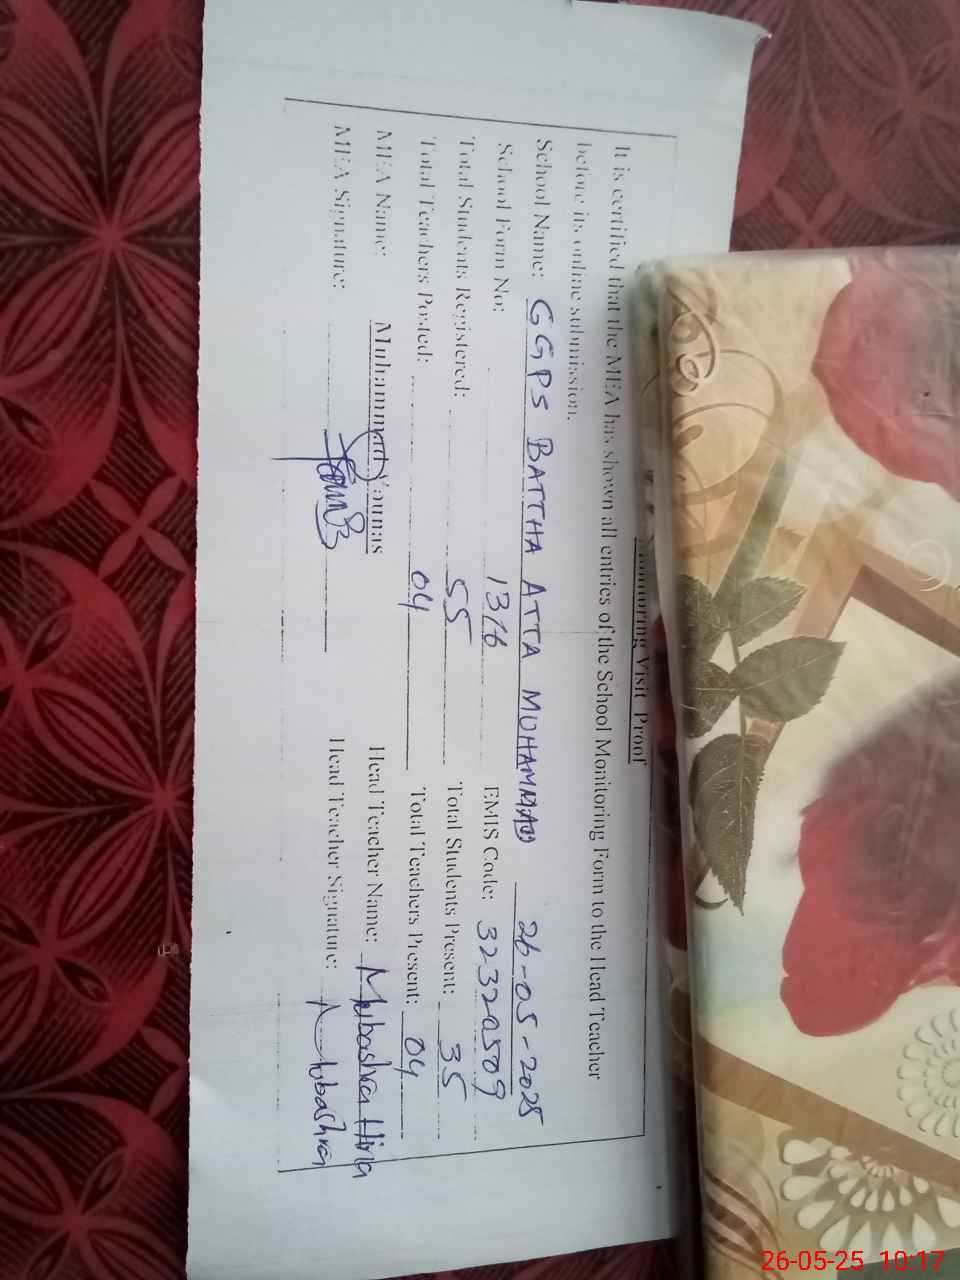 Monitoring Visit Proof
It is certified that the MEA has shown all entries of the School Monitoring Form to the Head Teacher
before its online submission.
School Name: GGPS BATTHA ATTA MUHAMMAD 26-05-2025
School Form No: 1316 EMIS Code: 32320509
Total Students Registered: 55 Total Students Present: 35
Total Teachers Posted: 04 Total Teachers Present: 04
MEA Name: Muhammad Younas Head Teacher Name: Mubashra Hina
MEA Signature: Head Teacher Signature: Mubashra
26-05-25 10:17